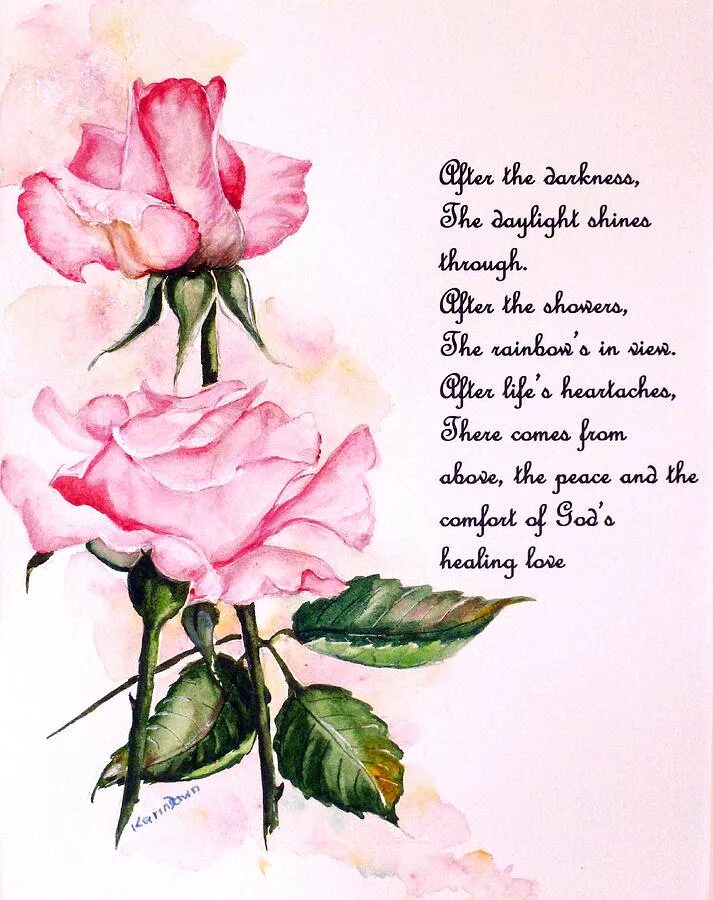 After the darkness,
The daylight shines
through.
After the showers,
The rainbow's in view.
After life's heartaches,
There comes from
above, the peace and the
comfort of God's
healing love